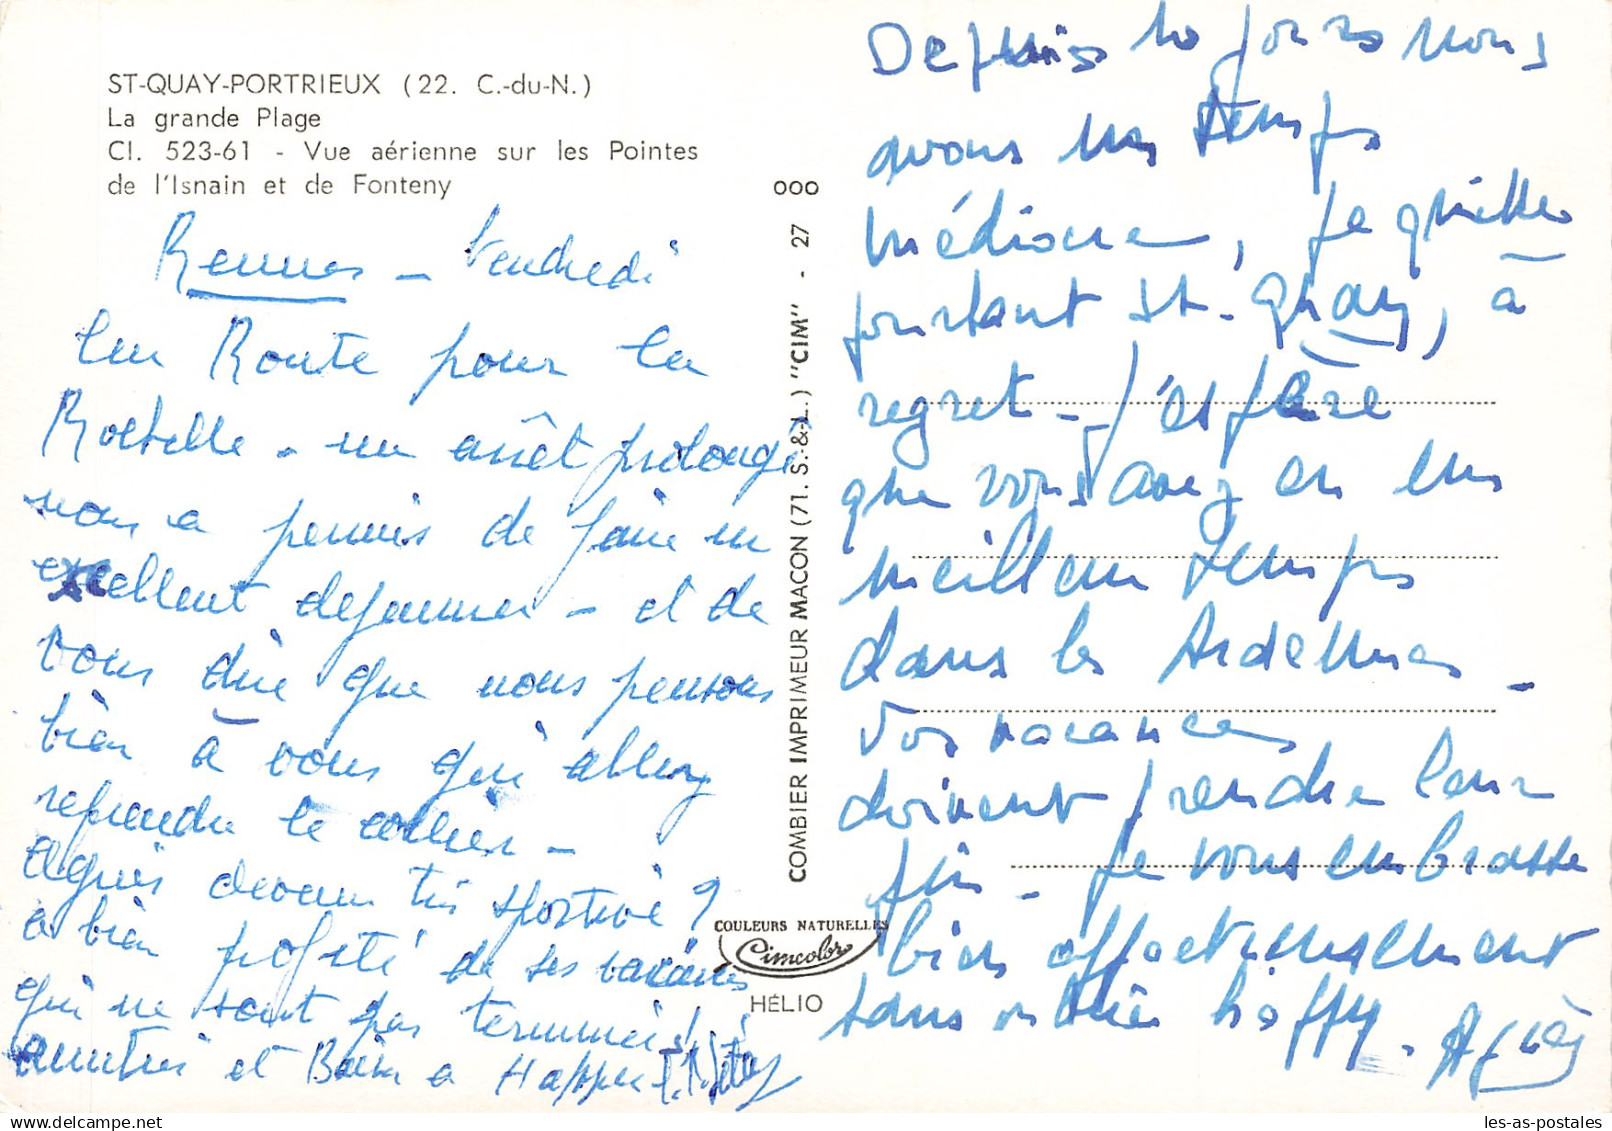 ST-QUAY-PORTRIEUX (22. C.-du-N.)
La grande Plage
Cl. 523-61 - Vue aérienne sur les Pointes
de l'Isnain et de Fonteny
Rennes - Vendredi
En Route pour la
Rochelle - un arrêt prolongé
nous a permis de faire un
excellent dejeuner - et de
vous dire que nous pensons
bien à vous qui allez
reprendre le collier -
Agnès devenue très sportive ?
a bien profité de ses vacances
qui ne sont pas terminées !
amitiés et Baisers a Happy
OOO
COMBIER IMPRIMEUR MACON (71. S.-&-L.) "CIM" - 27
COULEURS NATURELLES
Cimcolor
HÉLIO
Depuis 10 jours nous
avons un temps
médiocre, je quitte
pourtant St. Quay, à
regret - J'espère
que vous avez eu un
meilleur temps
dans les Ardennes -
Vos vacances
doivent prendre leur
fin - Je vous embrasse
bien affectueusement
sans oublier happy. Agnès
les-as-postales.com